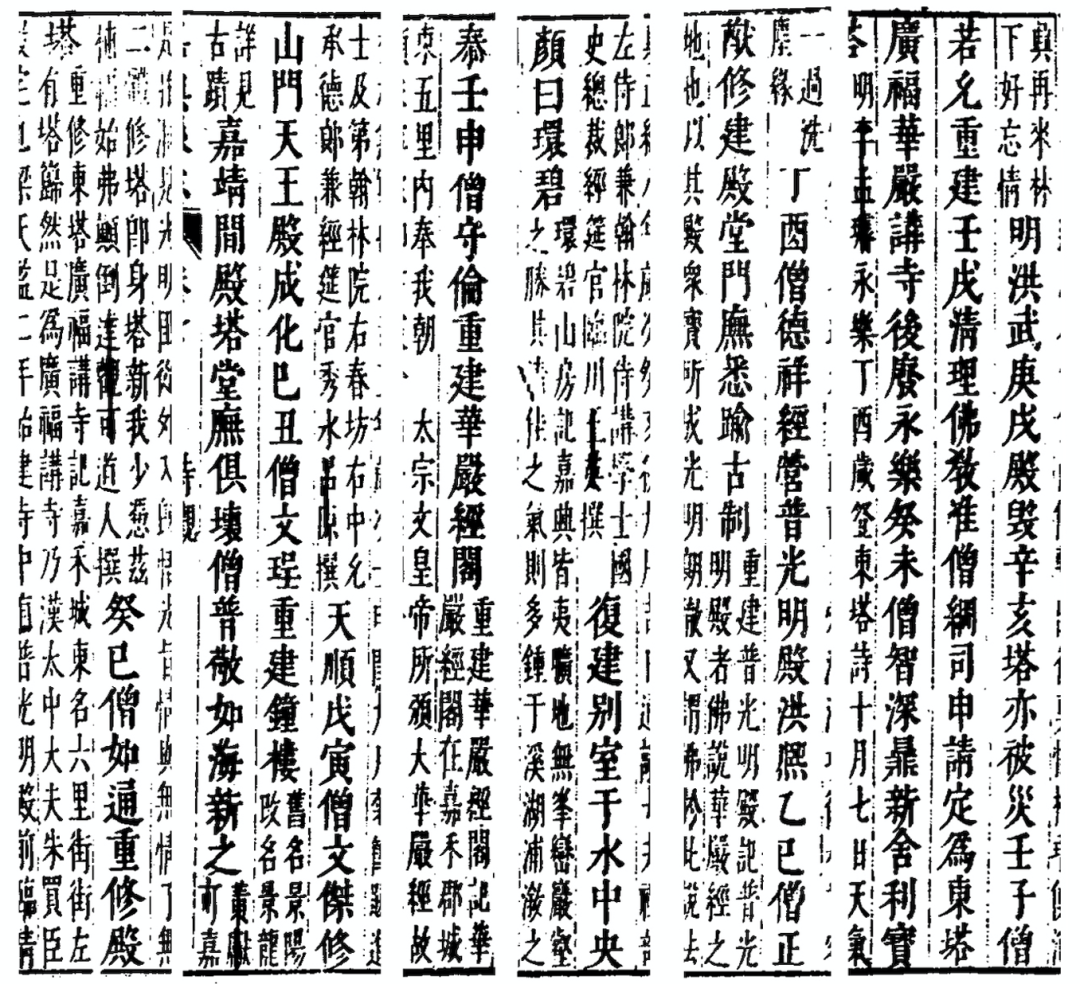 真再來林
下好忘情
明洪武庚戌殿毀辛亥塔亦被災壬子僧
若允重建壬戌清理佛教准僧綱司申請定為東塔
廣福華嚴講寺後廢永樂癸未僧智深鼎新舍利寶
塔明李孟璿永樂丁酉歲登東塔詩十月七日天氣
一過洗
塵緣
丁酉僧德祥經營普光明殿洪熙乙巳僧正
猷修建殿堂門廡悉踰古制
重建普光明殿記普光
明殿者佛說華嚴經之
地也以其殿衆寶所成光明朗徹又謂佛於此說法
左侍郎兼翰林院侍講學士國
史總裁經筵官臨川王英撰
復建别室于水中央
顏曰環碧
環碧山房記嘉興皆夷曠地無峯巒巖壑
之勝其清佳之氣則多鍾于溪湖浦漵之
泰壬申僧守倫重建華嚴經閣
重建華嚴經閣記華
嚴經閣在嘉禾郡城
東五里内奉我朝 太宗文皇帝所頒大華嚴經故
士及第翰林院右春坊右中允
承德郎兼經筵官秀水呂原撰
天順戊寅僧文傑修
山門天王殿成化己丑僧文珵重建鐘樓
舊名景陽
改名景龍
詳見
古蹟
嘉靖間殿塔堂廡俱壞僧普敬如海新之
二體修塔即身塔新我少憑茲
福始弗顛倒達觀可道人撰
癸巳僧如通重修殿
塔
重修東塔廣福講寺記嘉禾城東名六里街街左
有塔巋然是為廣福講寺乃漢太中大夫朱買臣
宅也梁天監二年始建寺中普光明殿前臨清